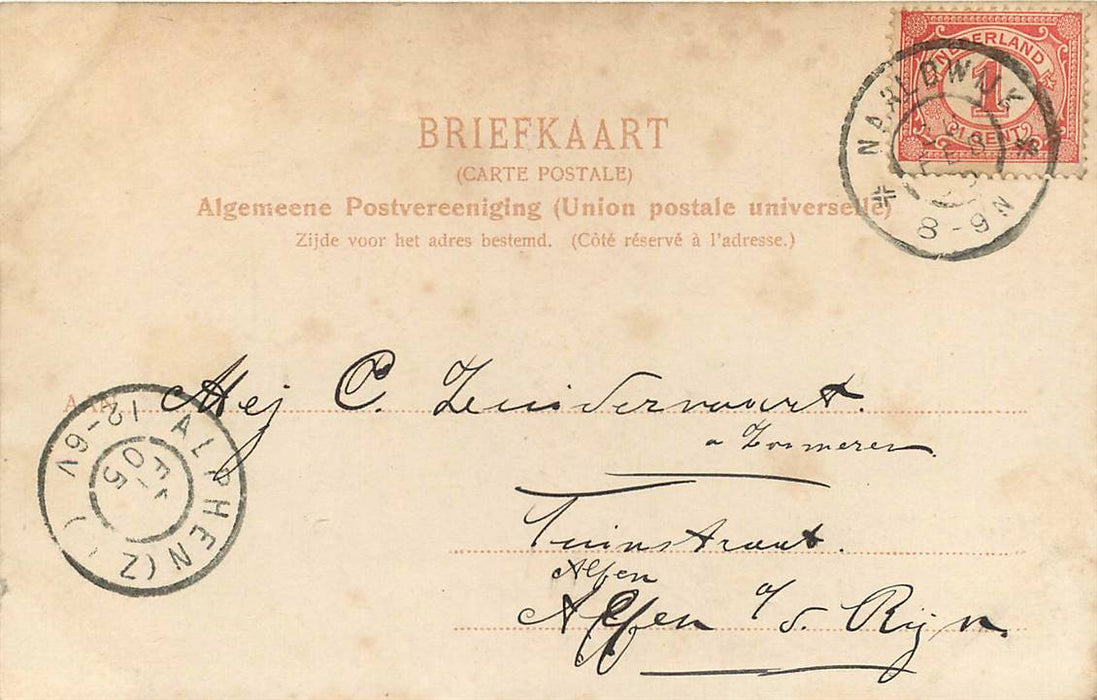 BRIEFKAART
(CARTE POSTALE)
Algemeene Postvereeniging (Union postale universelle)
Zijde voor het adres bestemd. (Côté réservé à l'adresse.)
NEDERLAND
1
CENT
NAALDWIJK
FEB
8-9N
AAN Mej C. Zuidervaart.
Tuinstraat.
Alfen
Alfen a/d. Rijn.
ALPHEN (Z.)
12-6V
05